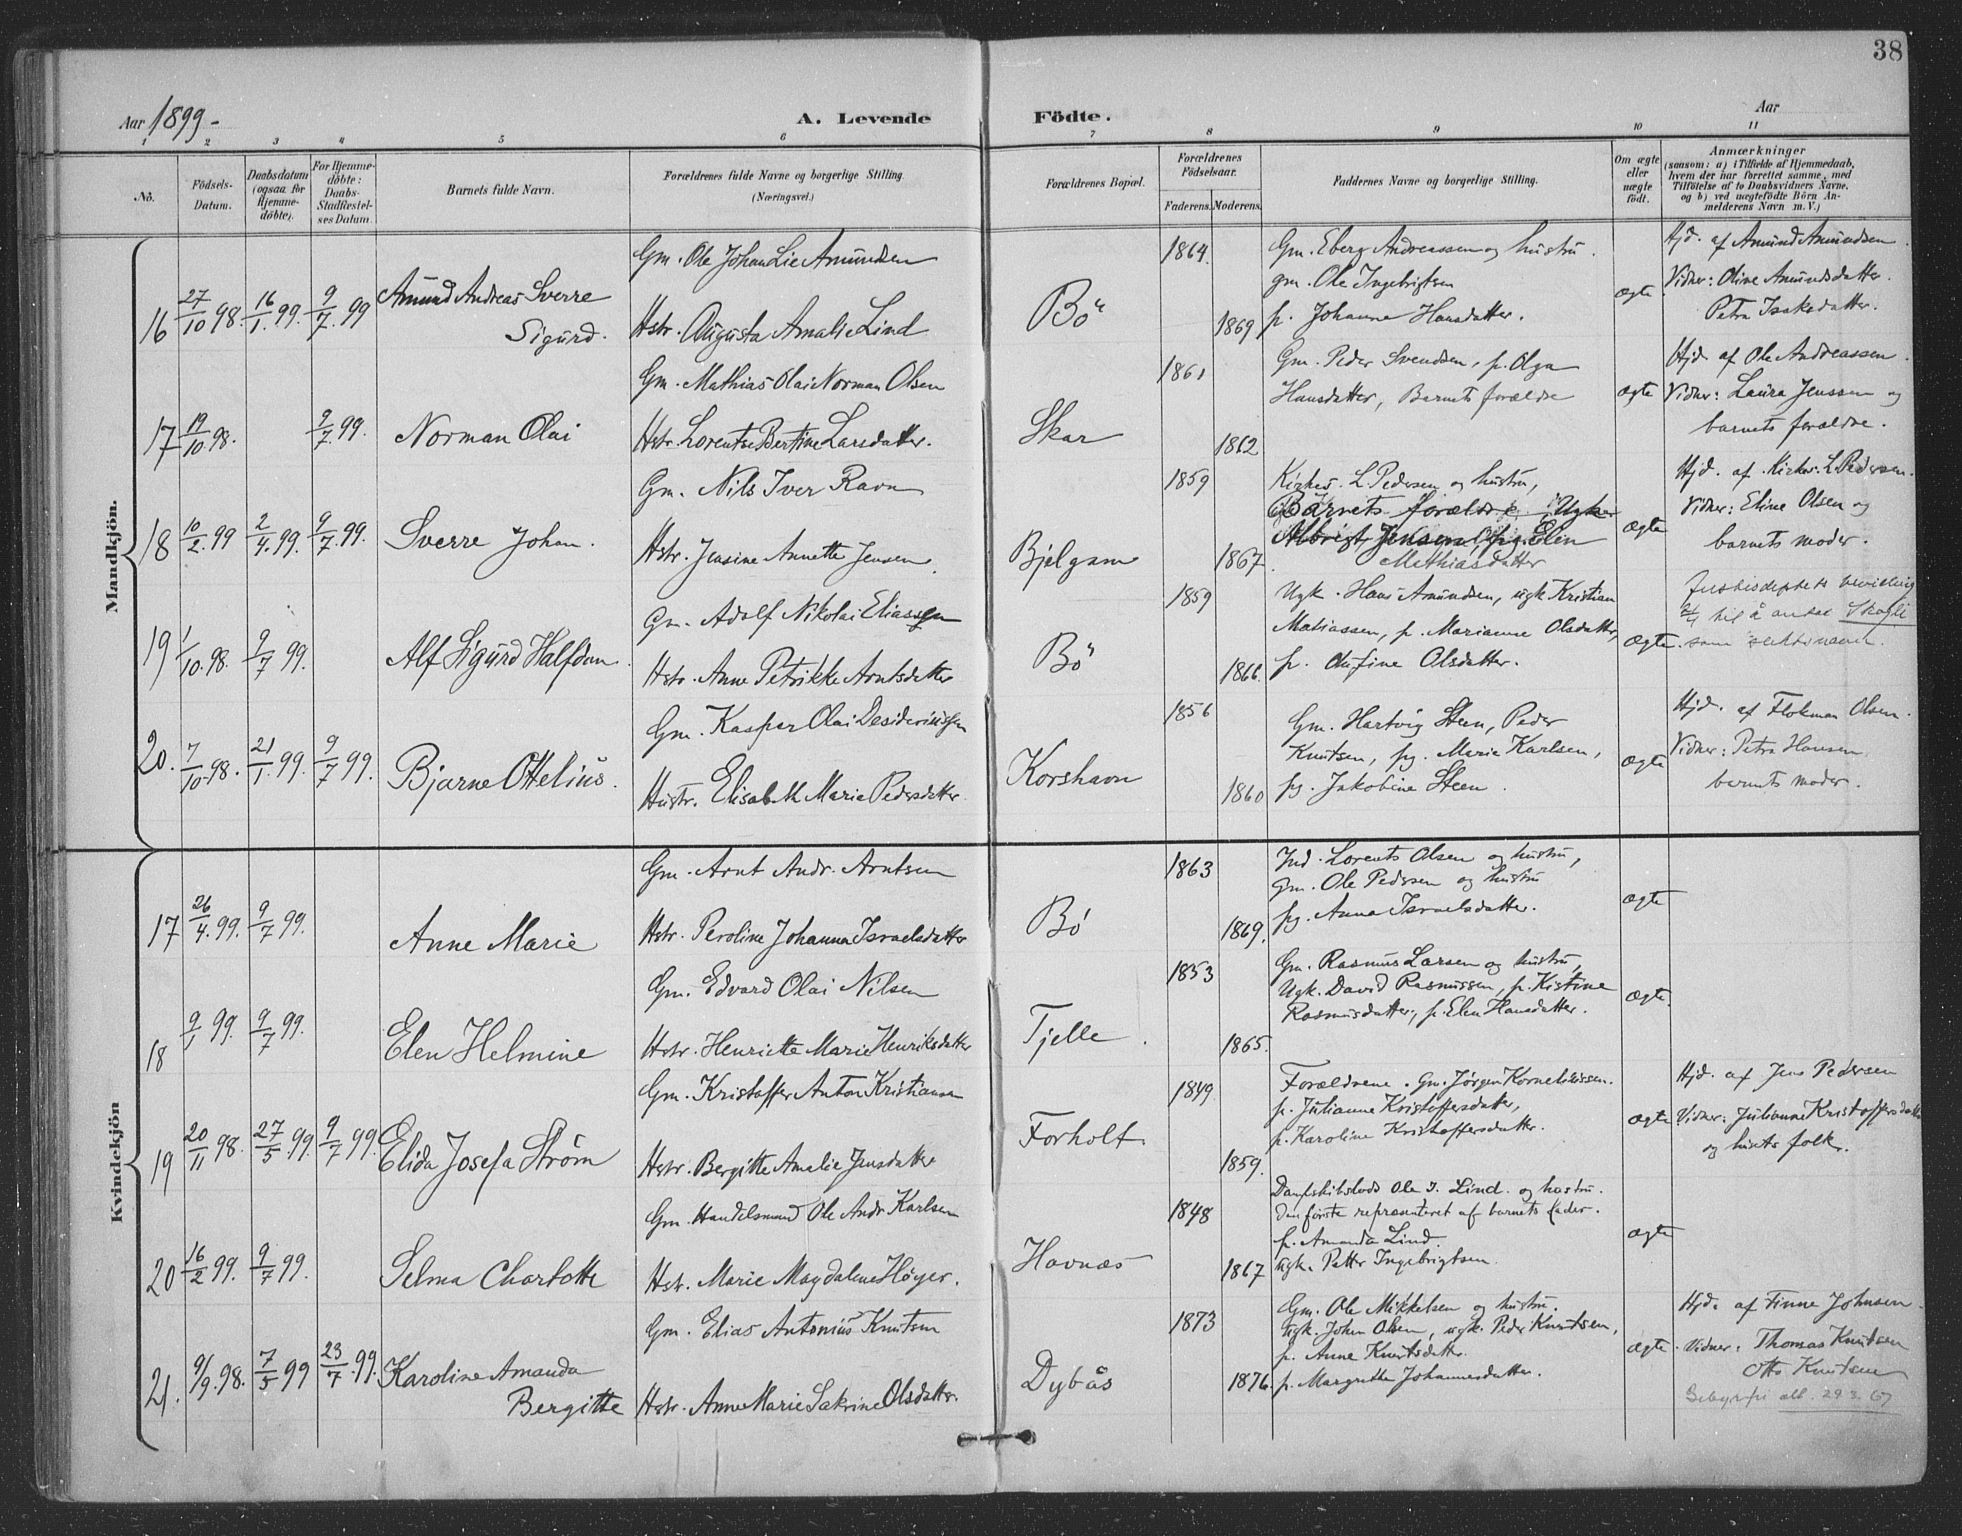 38
Aar 1899 -
A. Levende Födte.
Aar
1 2 3 4 5 6 7 8 9 10 11
No.
Födsels-Datum.
Daabsdatum (ogsaa for Hjemme-döbte).
For Hjemme-döbte: Daabs-Stadfæstel-ses Datum.
Barnets fulde Navn.
Forældrenes fulde Navne og borgerlige Stilling.
(Næringsvei.)
Forældrenes Bopæl.
Forældrenes Födselsaar.
Faderens. Moderens.
Faddernes Navne og borgerlige Stilling.
Om ægte eller uægte födt.
Anmærkninger
(saasom: a) i Tilfælde af Hjemmedaab,
hvem der har forrettet samme, med
Tilföielse af to Daabsvidners Navne,
og b) ved uægtefödte Börn An-
melderens Navn m. V.)
Mandkjön.
16 27/10 98. 16/1. 99. 9/7. 99
Amund Andreas Sverre
Sigurd.
Gm. Ole Johan Lie Amundsen
Hstr. Augusta Amalie Lind
Bö
1864.
1869
Gm. Eberg Andreassen og hustru.
gm. Ole Ingebrigtsen
p. Johanne Hansdatter.
ægte
Hjd. af Amund Amundsen.
Vidner: Oline Amundsdatter.
Petra Isaksdatter.
17 19/10. 98. 9/7. 99.
Norman Olai
Gm. Mathias Olai Norman Olsen
Hstr. Lorentse Bertine Larsdatter.
Skar
1861
1862
Gm. Peder Svendsen, p. Olga
Hansdatter, Barnets forældre
ægte
Hjd. af Ole Andreassen.
Vidner: Laura Jenssen og
barnets forældre.
18 10/2. 99 2/4. 99. 9/7. 99.
Sverre Johan.
Gm. Nils Iver Ravn
Hstr. Jensine Annette Jensen.
Bjelgam
1859
1867.
Kirkes. L. Pedersen og hustru,
Barnets forældre,
Albrigt Jensen, pig. Elin
Mathiasdatter
ægte
Hjd. af Kirkes. L. Pedersen.
Vidner: Eline Olsen og
barnets moder.
19 1/10. 98. 9/7 99.
Alf Sigurd Halfdan.
Gm. Adolf Nikolai Eliassen
Hstr. Anne Petrikke Arntsdatter
Bö
1859
1866.
Ugk. Hans Amundsen, ugk Kristian
Matiassen, p. Marianne Olsdatter,
p. Olufine Olsdatter.
ægte.
Justisdeptets bevilling
til å antat Skogli
som slektsnavn.
20. 7/10. 98. 21/1. 99. 9/7 99.
Bjarne Ottelius.
Gm. Kasper Olai Desideriussen
Hustr. Elisabeth Marie Pedersdatter
Korshavn
1856
1860
Gm. Hartvig Steen, Peder
Knutsen, pg. Marie Karlsen,
pg. Jakobine Steen.
ægte
Hjd. af Flokman Olsen.
Vidner: Petra Hansen
barnets moder.
Kvindekjön
17 26/4. 99. 9/7 99.
Anne Marie
Gm. Arnt Andr. Arntsen
Hstr. Peroline Johanna Israelsdatter
Bö
1863
1869.
Ind. Lorents Olsen og hustru,
gm. Ole Pedersen og hustru
pg. Anna Israelsdatter.
ægte
18 9/1 99. 9/7 99.
Elen Helmine
Gm. Edvard Olai Nilsen
Hstr. Henriette Marie Henriksdatter
Tjelle.
1853
1865.
Gm. Rasmus Larsen og hustru,
Ugk. David Rasmussen, p. Kistine
Rasmusdatter, p. Elen Hansdatter.
ægte.
19 20/11 98. 27/5. 99. 9/7 99.
Elida Josefa Strøm
Gm. Kristoffer Anton Kristiansen
Hstr. Bergitte Amalie Jensdatter
Forholt.
1849.
1859.
Forældrene. Gm. Jørgen Korneliussen.
p. Julianne Kristoffersdatter,
p. Karoline Kristoffersdatter.
ægte
Hjd. af Jens Pedersen
Vidner: Julianne Kristoffersdatter
og husets folk.
20 16/2 99. 9/7 99.
Selma Charlotte
Gm. Handelsmand Ole Andr Karlsen
Hstr. Marie Magdalene Høyer.
Havnæs
1848
1867
Dampskibslods Ole J. Lind. og hustru.
Den første repræsenteret af barnets fader.
p. Amanda Lind.
ugk. Petter Ingebrigtsen.
ægte
21. 9/9. 98. 7/5 99 23/7. 99.
Karoline Amanda
Bergitte
Gm. Elias Antonius Knutsen
Hstr. Anne Marie Sakrine Olsdatter.
Dybås
1873
1876.
Gm. Ole Mikkelsen og hustru.
Ugk. Johan Olsen, ugk. Peder Knutsen,
p. Anne Knutsdatter.
p. Margrethe Johannesdatter.
ægte.
Hjd. af Finne Johnsen.
Vidner: Thomas Knutsen
Otto Knutsen
29.3.67